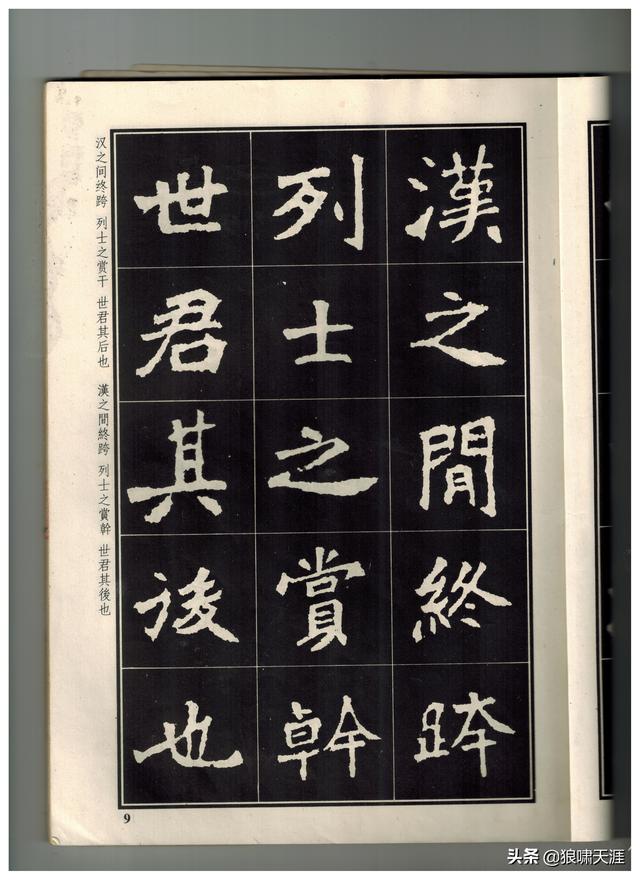 漢之間終跨
列士之賞幹
世君其後也
汉之间终跨 列士之赏干 世君其后也 漢之間終跨 列士之賞幹 世君其後也
9
头条 @狼啸天涯